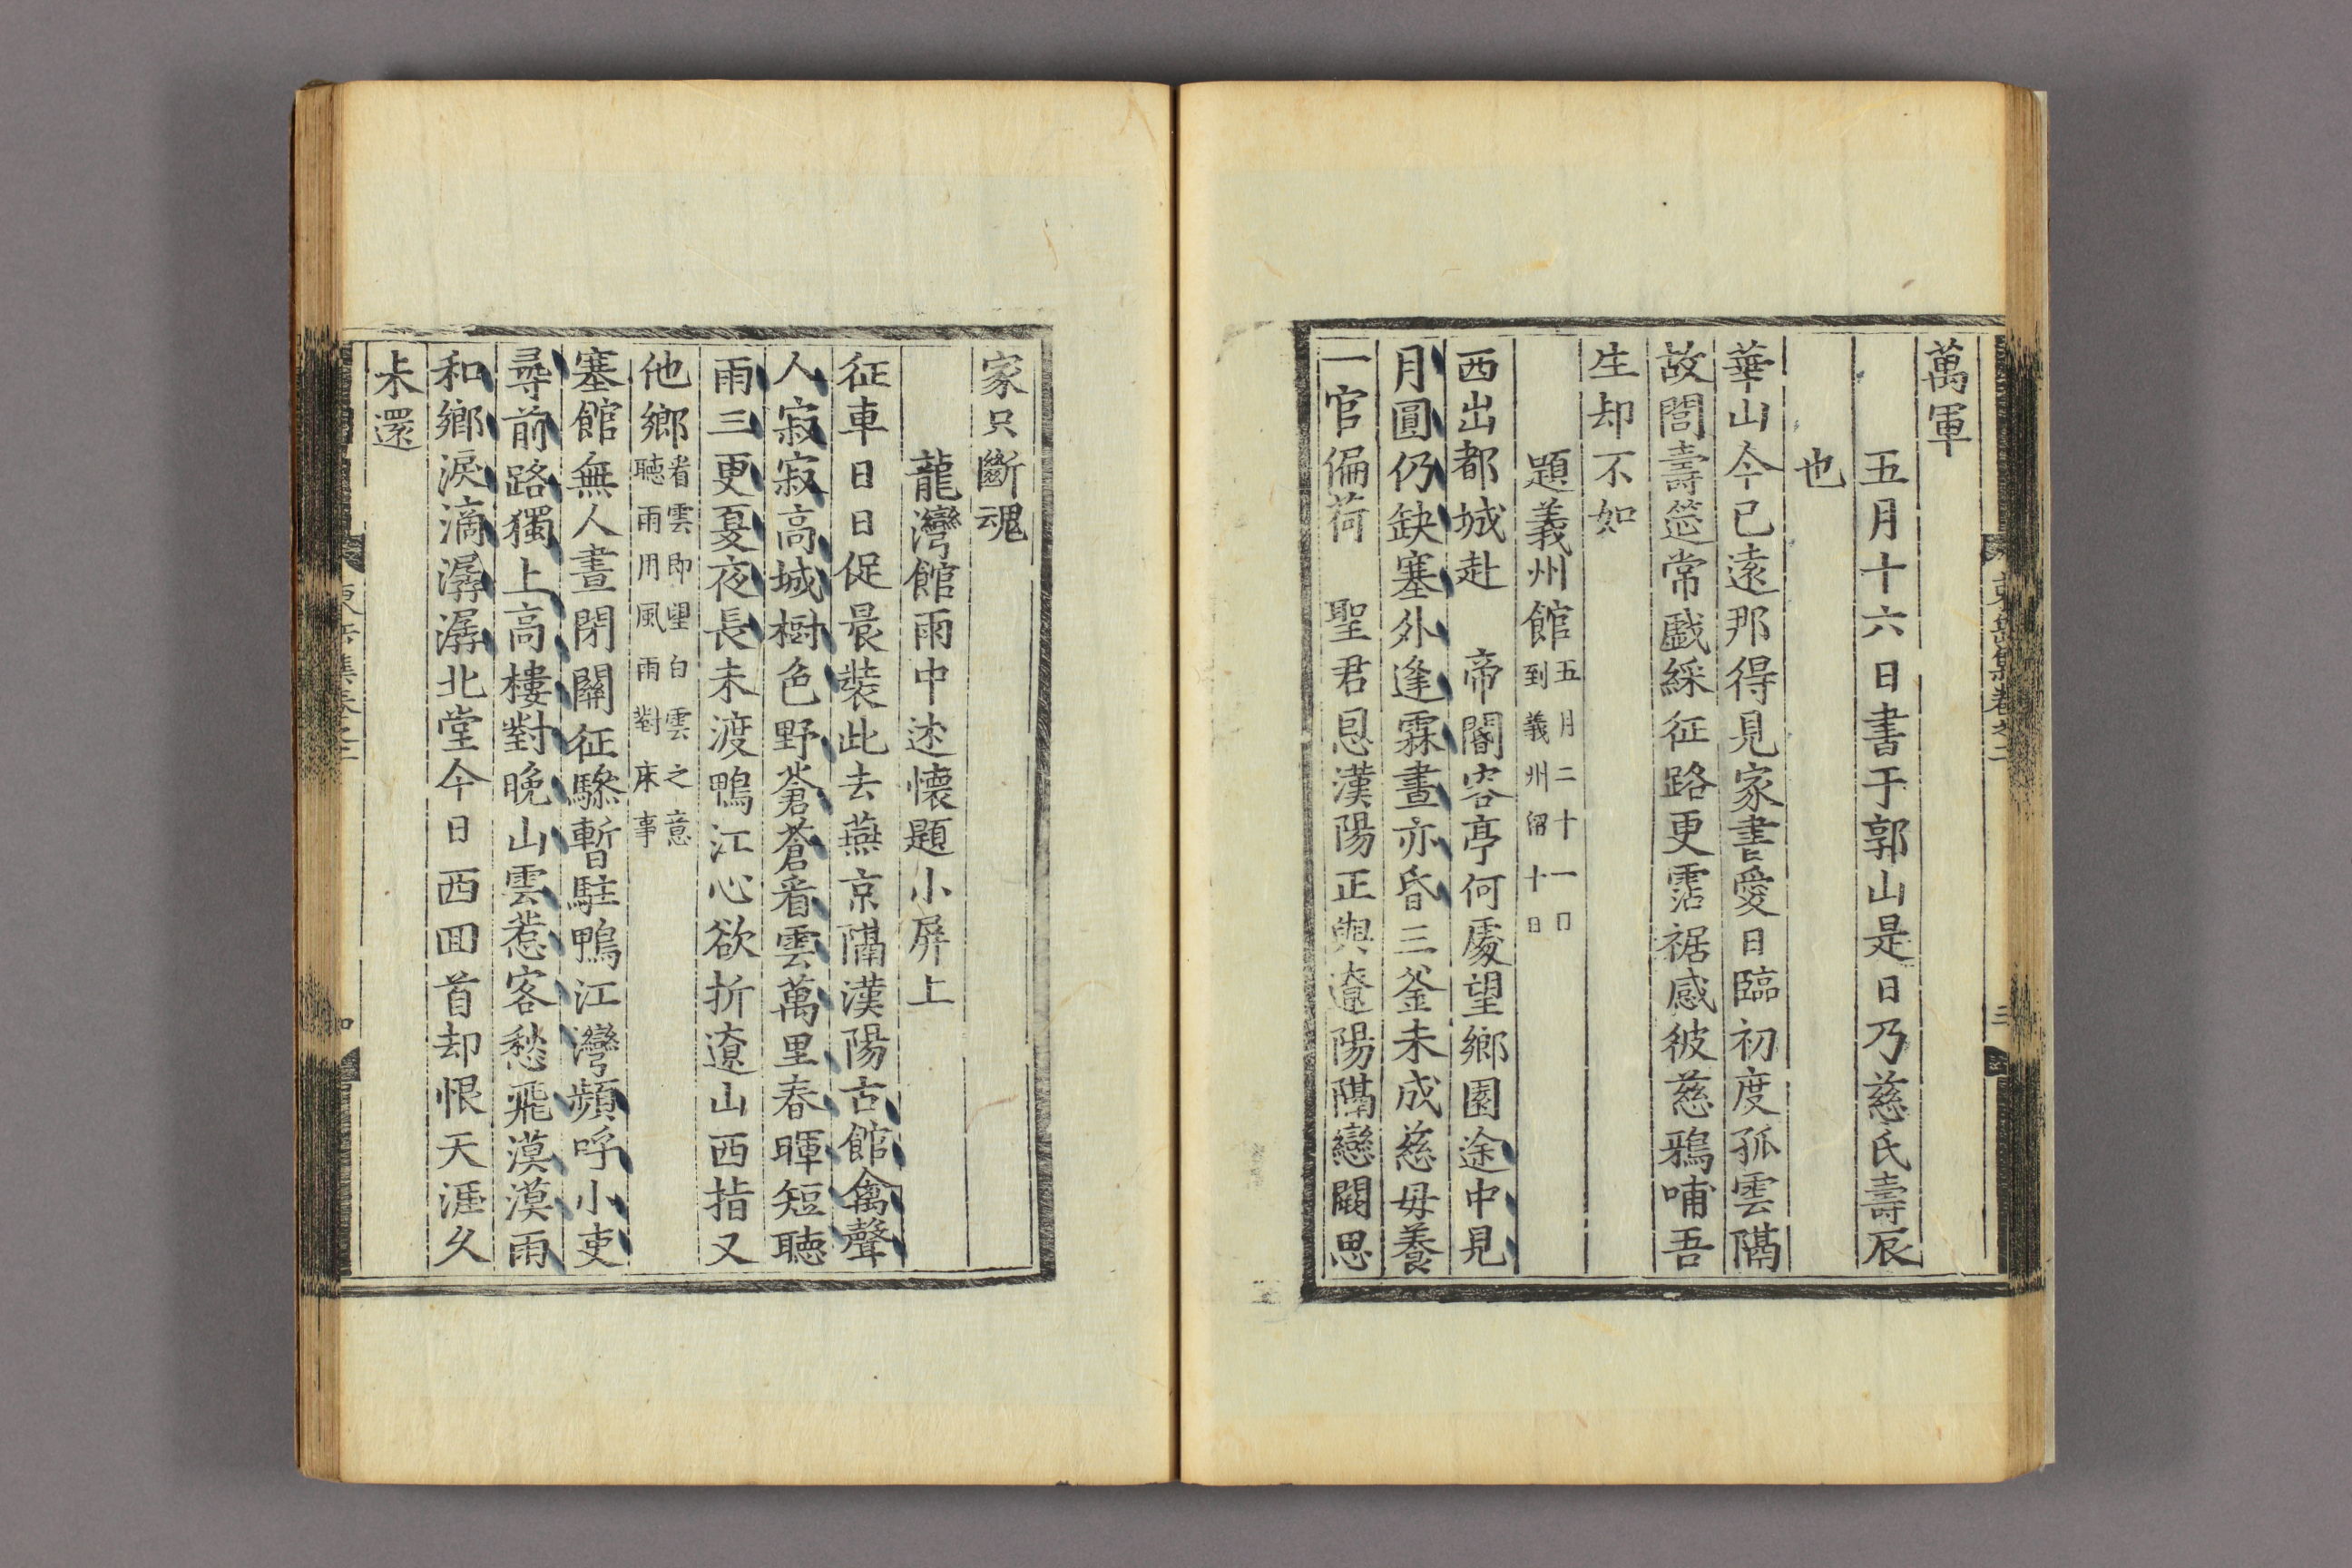 萬軍
五月十六日書于郭山是日乃慈氏壽辰
也
華山今已遠那得見家書愛日臨初度孤雲隔
故閭壽筵常戱綵征路更霑裾感彼慈鴉哺吾
生却不如
題義州館五月二十一日
到義州留十日
西出都城赴 帝閽客亭何處望鄉園途中見
月圓仍缺塞外逢霖晝亦昏三釜未成慈母養
一官偏荷 聖君恩漢陽正與遼陽隔戀闕思
家只斷魂
龍灣館雨中述懷題小屛上
征車日日促晨裝此去燕京隔漢陽古館禽聲
人寂寂高城樹色野蒼蒼看雲萬里春暉短聽
雨三更夏夜長未渡鴨江心欲折遼山西指又
他鄉看雲即望白雲之意
聽雨用風雨對床事
塞館無人晝閉關征驂暫駐鴨江灣頻呼小吏
尋前路獨上高樓對晚山雲惹客愁飛漠漠雨
和鄉淚滴潺潺北堂今日西回首却恨天涯久
未還